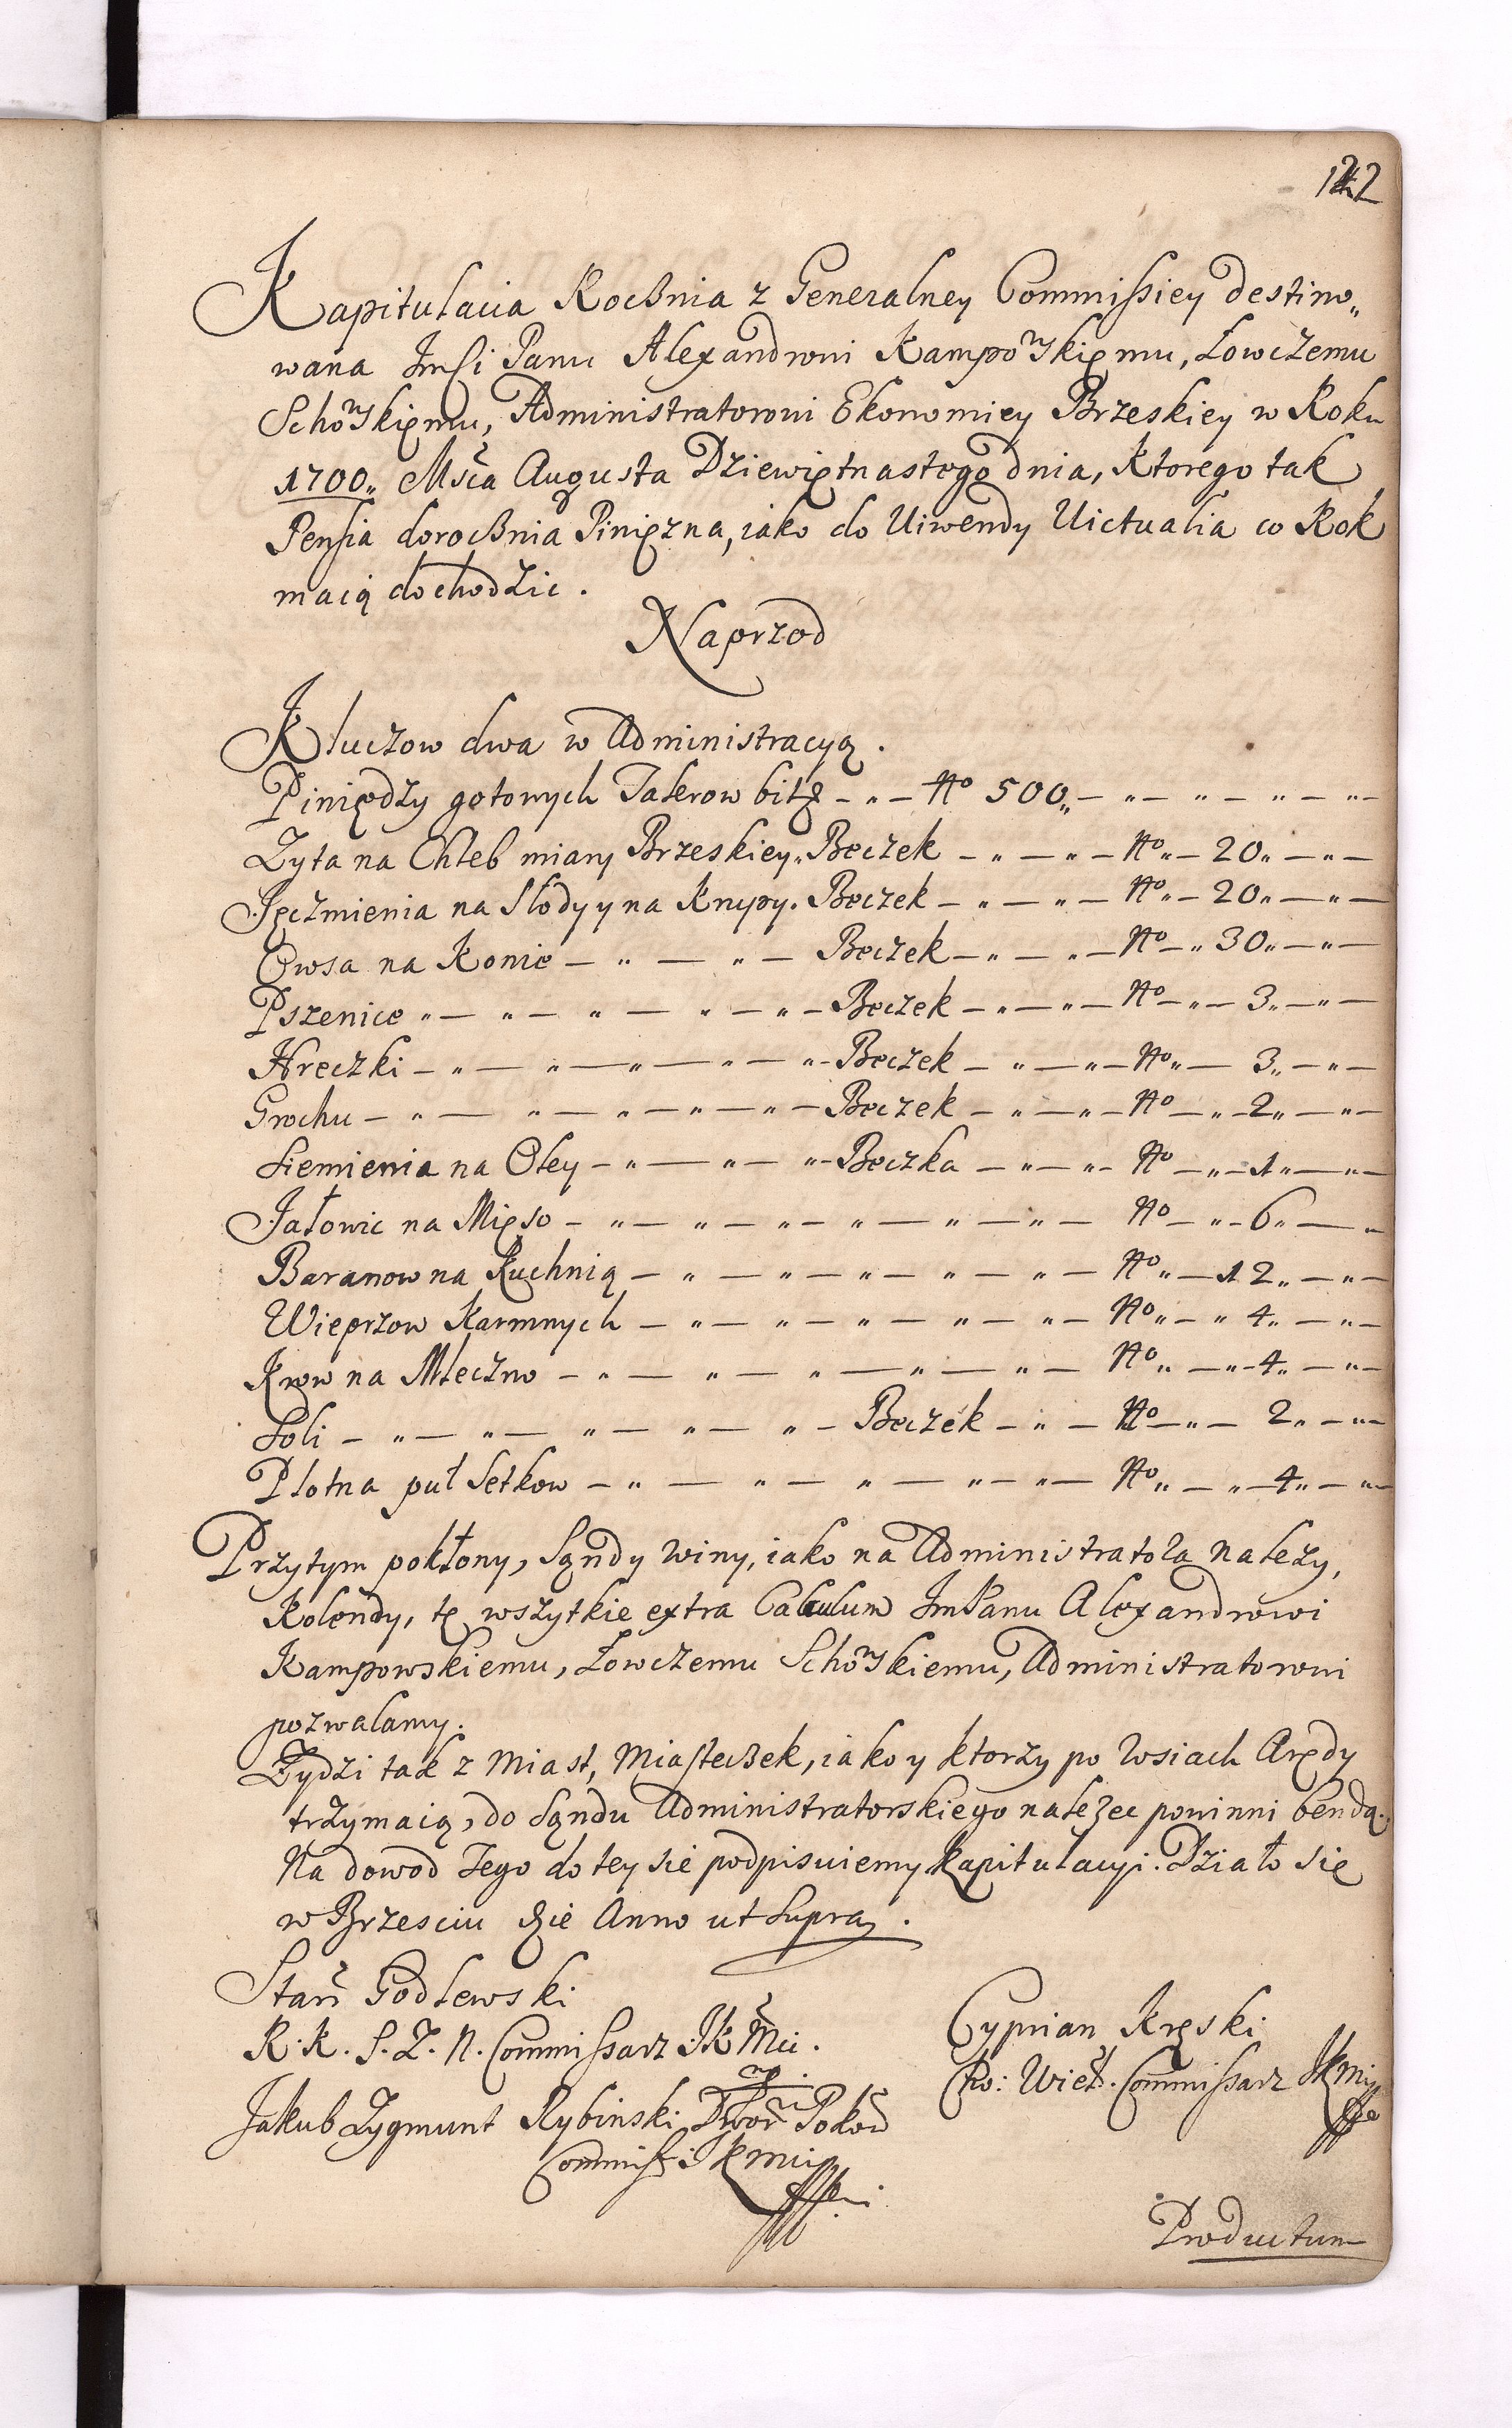 122
Kapitulacia Rocßnia z Generalney Commißiey destino„
wana Jmſci Panu Alexandrowi Kampowskięmu, Łowczemu
Schowskięmu, Administratorowi Ekonomiey Brzeskiey w Roku
1700„ Msca Augusta Dziewiętnastego dnia, Ktorego tak
Penſia dorocßnia Pinięzna, iako do Uiwendy Uictualia co Rok
maią dochodzic.
Naprzod
Kluczow dwa w Administracyą.
Piniędzy gotowych Talerow bitẜ – „ – No 500„ – „ – „ – „ – „ –
Zyta na Chleb miary Brzeskiey„ Beczek – „ – „ – No„ – 20„ – „ –
Jęczmienia na Slody y na Krupy. Beczek – „ – „ – No„ – 20„ – „ –
Owsa na Konie – „ – „ – Beczek – „ – „ – No – „ 30„ – „ –
Pszenice „ – „ – „ – „ – „ – Beczek – „ – „ – No – „ – 3„ – „ –
Hreczki – „ – „ – „ – „ – „ – Beczek – „ – „ – No„ – 3„ – „ –
Grochu – „ – „ – „ – „ – „ – Beczek – „ – „ – No – „ – 2„ – „ –
Siemienia na Oley – „ – „ – „ – Beczka – „ – „ – No – „ – 1„ – „ –
Jałowic na Mięso – „ – „ – „ – „ – „ – „ – No – „ – 6„ – „
Baranow na Kuchnią – „ – „ – „ – „ – „ – No„ – 12„ – „ –
Wieprzow Karmnych – „ – „ – „ – „ – „ – No„ – „ 4„ – „ –
Krow na Mleczno – „ – „ – „ – „ – „ – No„ – „ – 4„ – „ –
Soli – „ – „ – „ – „ – „ – Beczek – „ – No – „ – 2„ – „ –
Plotna puł Setkow – „ – „ – „ – „ – „ – No„ – „ – 4„ – „ –
Przytym pokłony, Sąndy winy, iako na Administratora nalezy,
Kolendy, tę wszytkie extra Calculum JmPanu Alexandrowi
Kampowskiemu, Łowczemu Schowskiemu, Administratorowi
pozwalamy.
Zydzi tak z Miast, Miaſtecßek, iako y ktorzy po Wsiach Arędy
trzymaią, do Sąndu Administratorskiego nalezec powinni bendą.
Na dowod Tego do tey sie podpisuiemy Kapitulacyi. Działo się
w Brzesciu die Anno ut Supra.
Stan Godlewski
R. K. S. Z. N. Commißarz JKMci.
Cyprian Kręski
Cho: Wiel. Commißarz JKMci
Jakub Zygmunt Rybinski Dwor Pokow
Commiß: JKmci
Productum